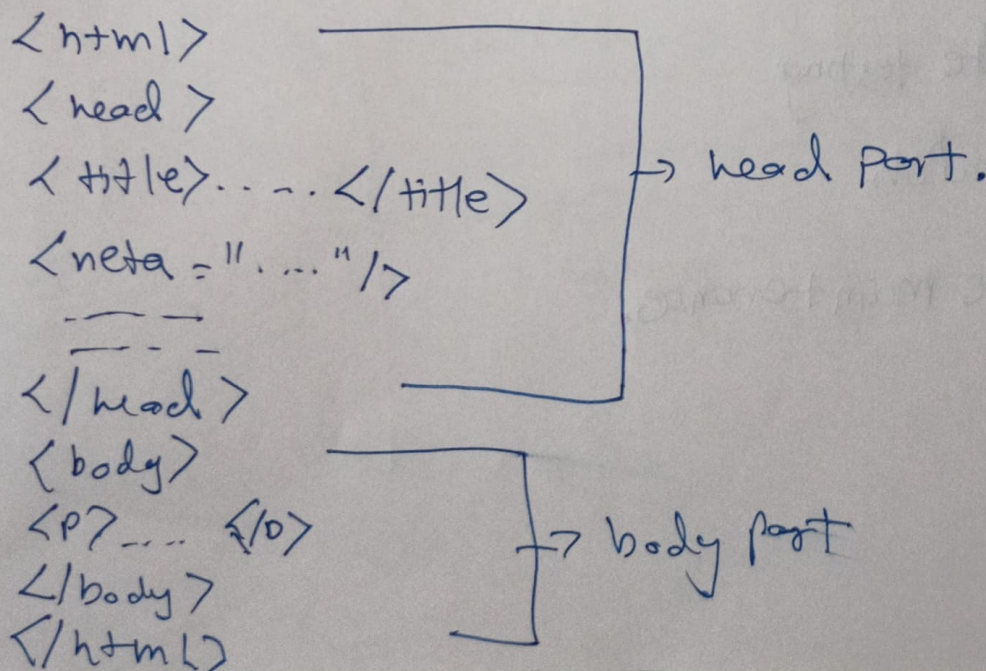 <html>
<head>
<title>..... </title>
<meta = "...." />
</head>
<body>
<p>.... </p>
</body>
</html>
→ head part.
→ body part